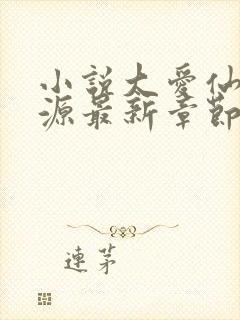 小說太愛仙
源最新章節
連茅